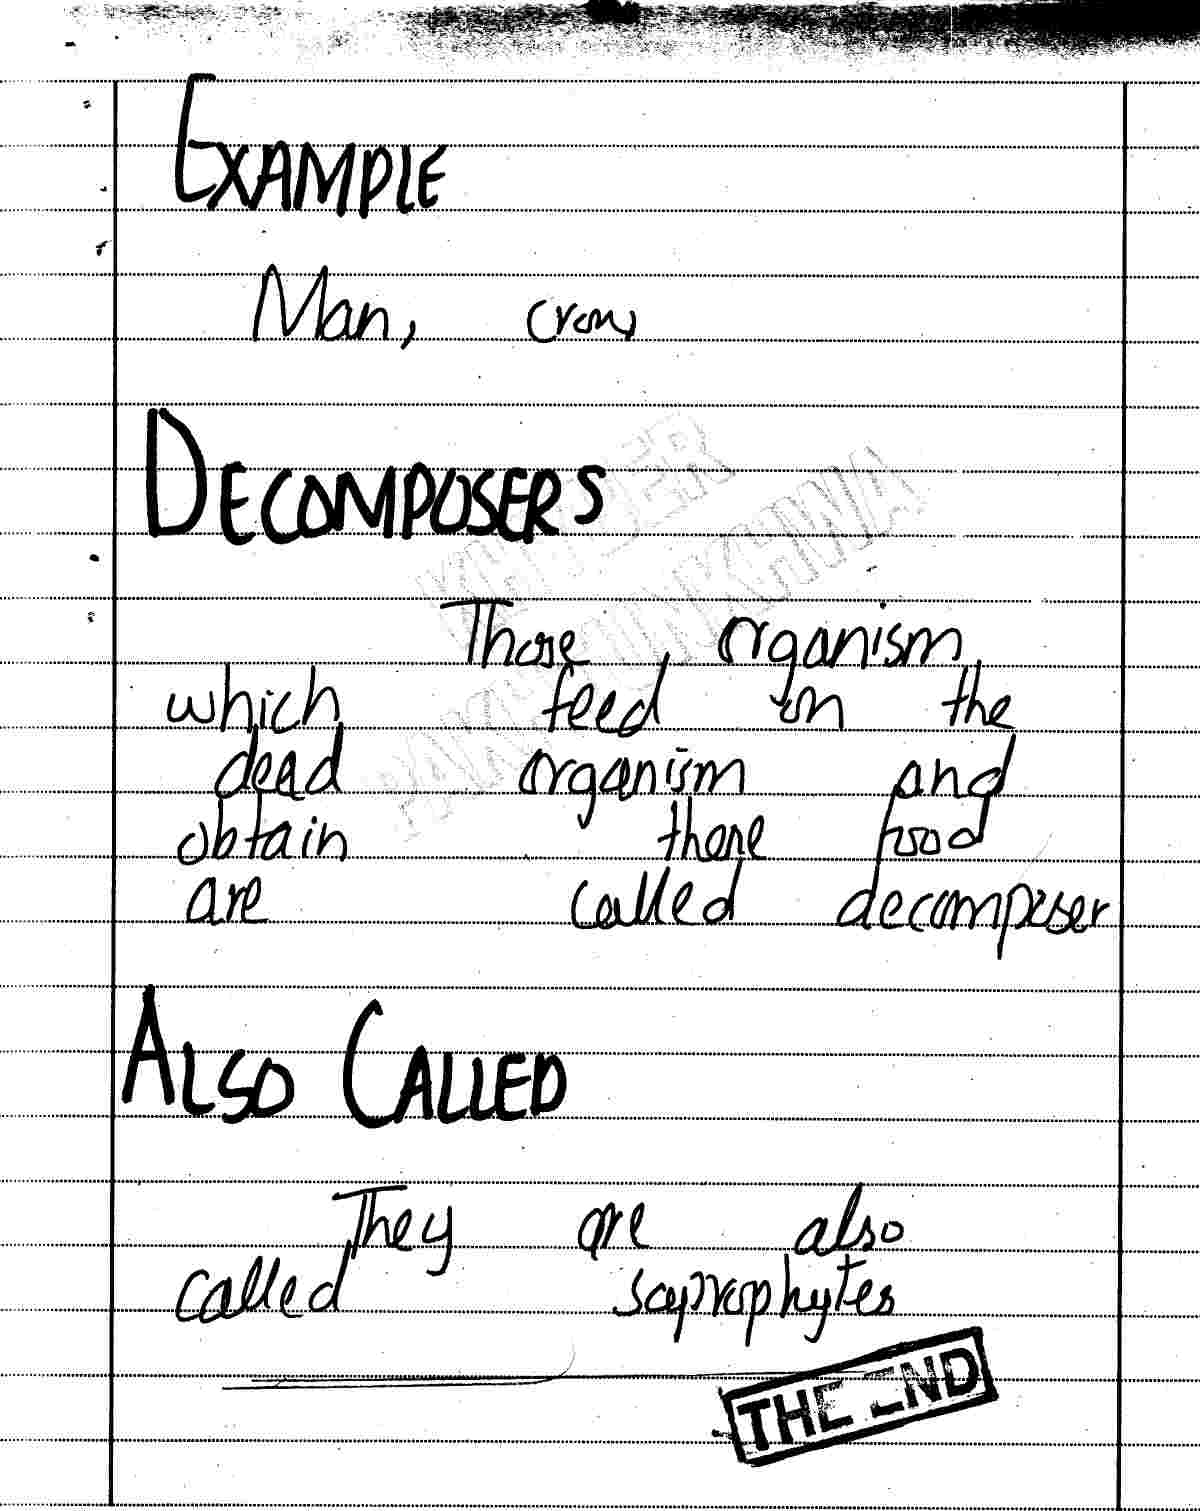 EXAMPLE
Man, crow
DECOMPOSERS
KHYBER
PAKHTUNKHWA
Those organism
which feed on the
dead organism and
obtain there food
are called decomposer
ALSO CALLED
They are also
called saprophytes
THE END